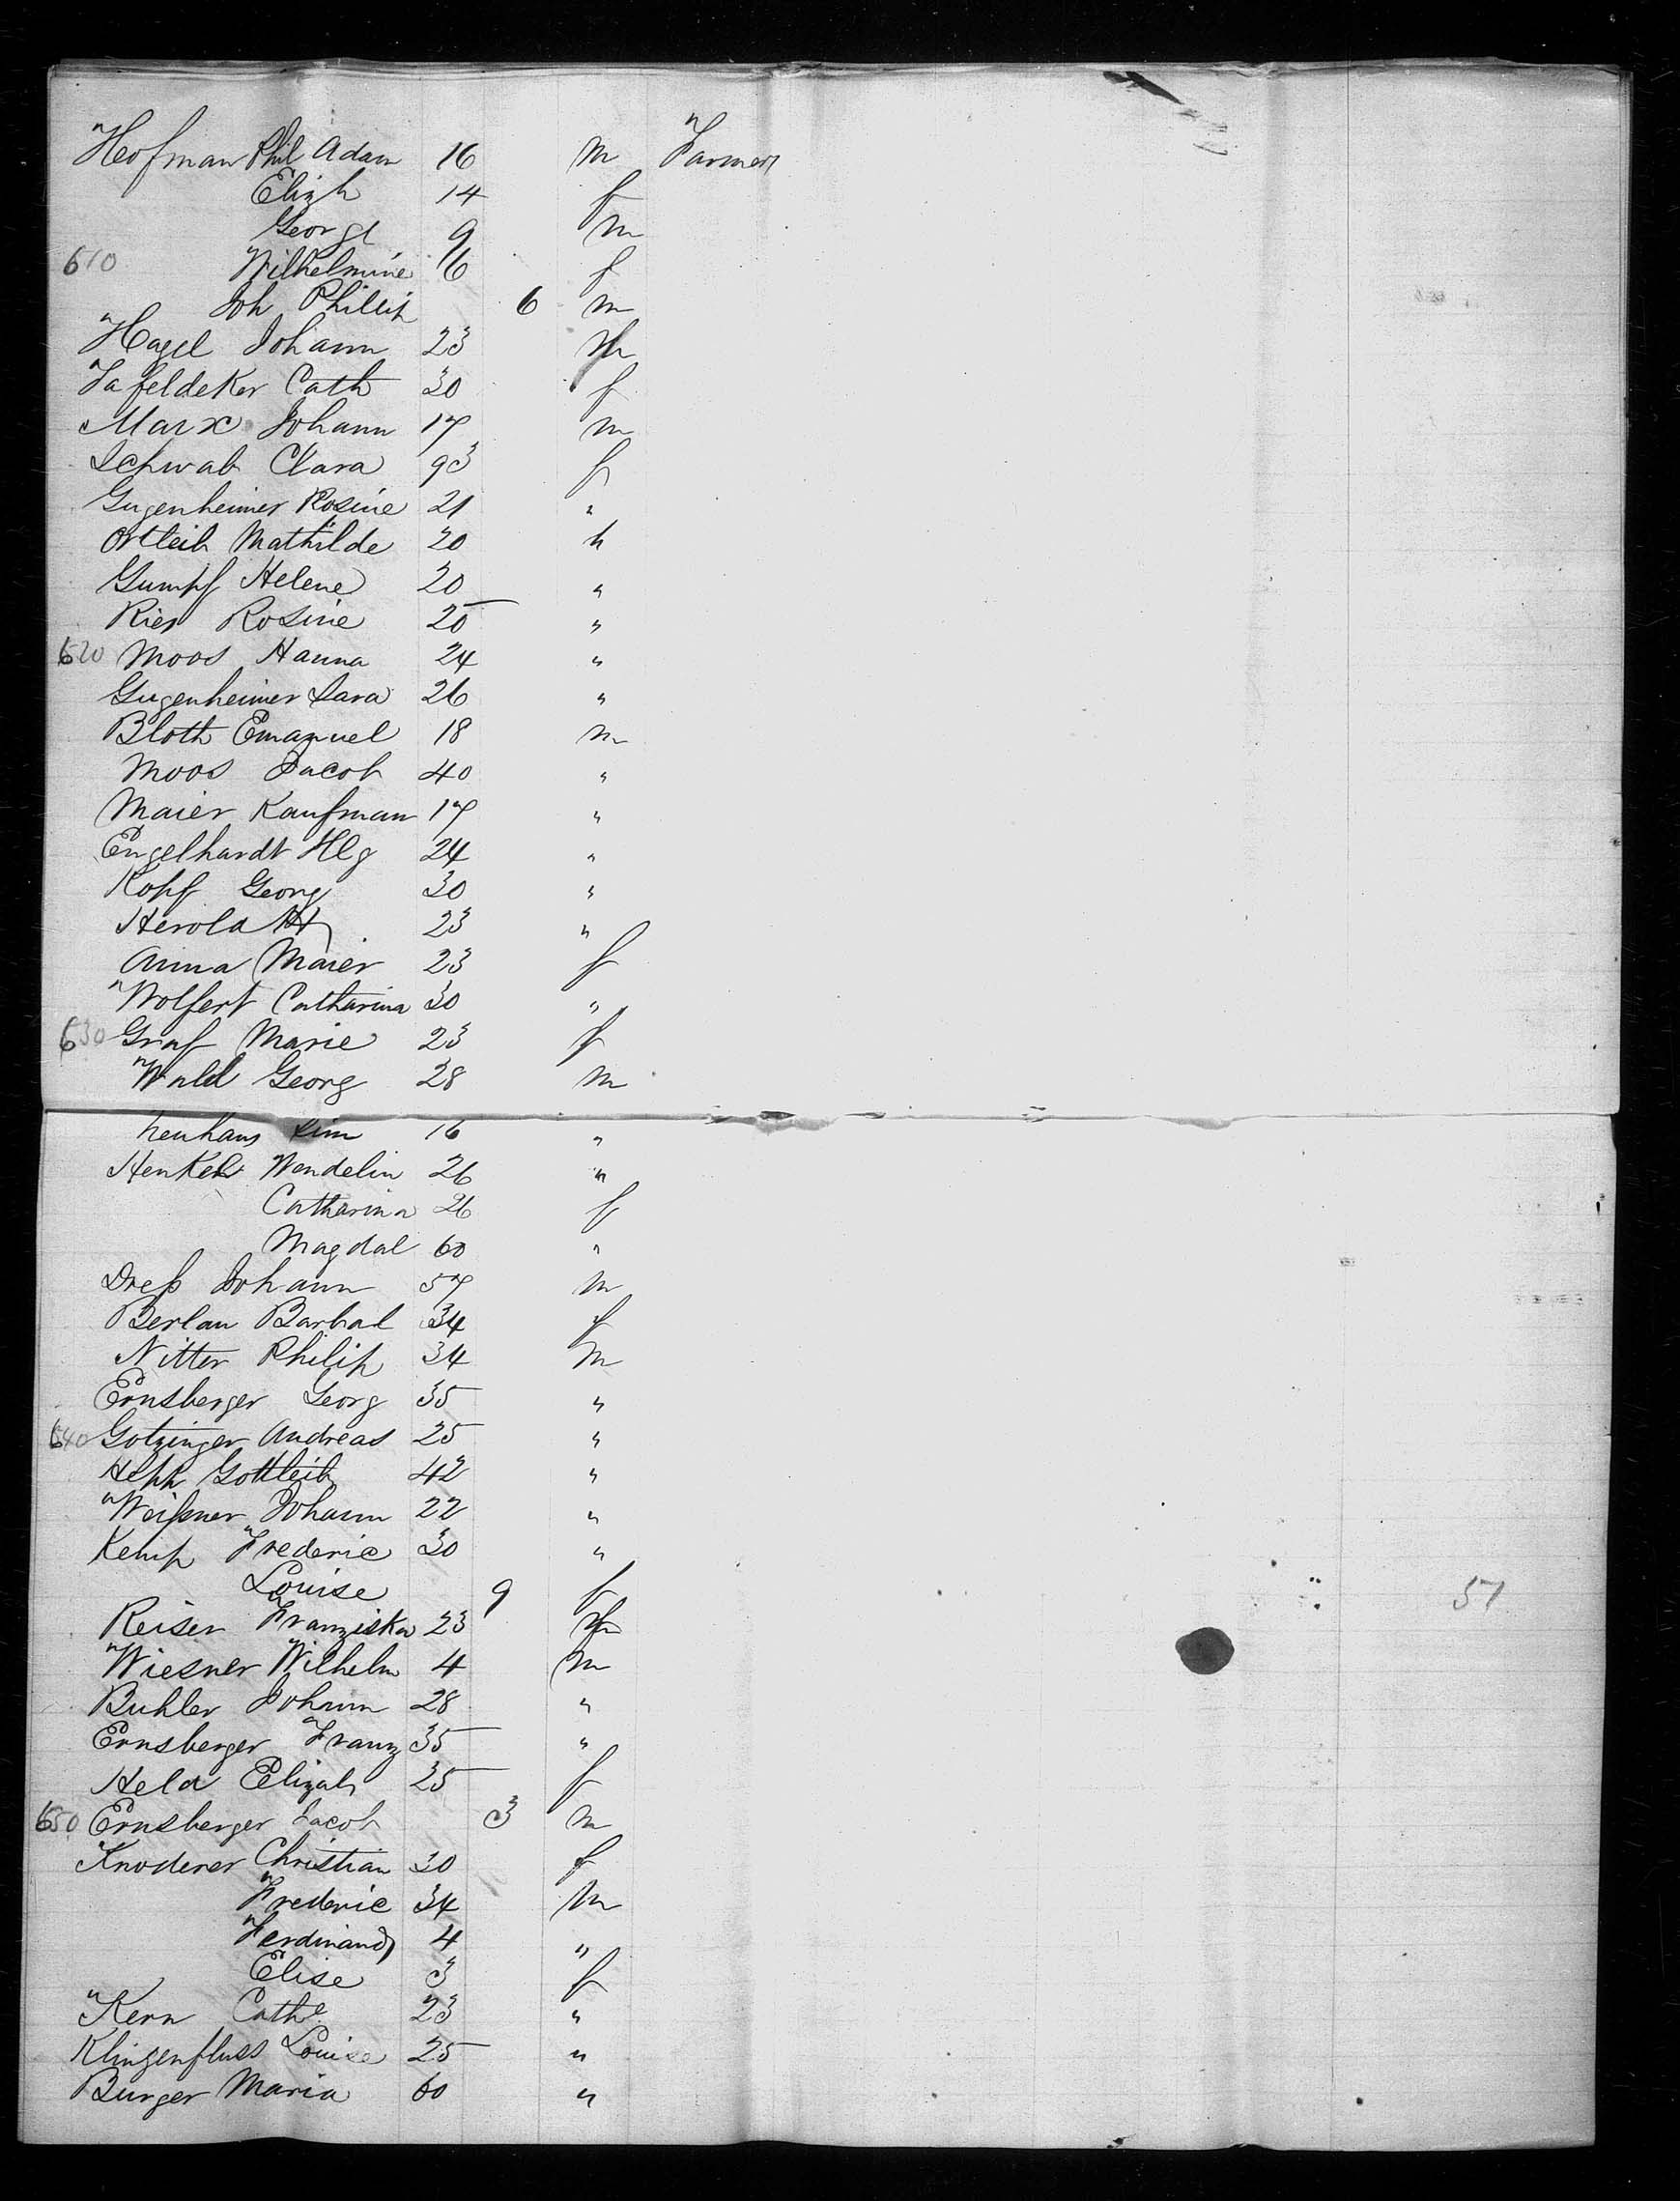 Hofman Phil Adam 16 m Farmer
Elizh 14 f
George 9 m
610 Wilhelmine 6 f
Joh Phillip 6 m
Hagel Johann 23 m
Tafeldeker Cath 30 f
Marx Johann 17 m
Schwab Clara 93 f
Gugenheimer Rosine 21 "
Ortleib Mathilde 20 "
Gumpf Helene 20 "
Ries Rosine 25 "
620 Moos Hanna 24 "
Gugenheimer Sara 26 "
Bloth Emanuel 18 m
Moos Jacob 40 "
Maier Kaufman 17 "
Engelhardt Hlg 24 "
Kopf Georg 30 "
Herold 23 "
Anna Maier 23 f
Wolfert Catharina 30 "
630 Graf Marie 23 f
Wald Georg 28 m
Neuhaus Sim 16 "
Henkel Wendelin 26 "
Catharina 26 f
Magdal 60 "
Dreß Johann 57 m
Berlau Barbal 34 f
Nitter Philip 34 m
Ernsberger Georg 35 "
640 Gotzinger Andreas 25 "
Hepp Gottleib 42 "
Weißner Johann 22 "
Kemp Frederic 30 "
Louise 9 f
57
Reiser Franziska 23
Wiesner Wilhelm 4 m
Buhler Johann 28 "
Ernsberger Franz 35 "
Held Elizab 25 f
650 Ernsberger Jacob 3 m
Knoderer Christian 30 f
Frederic 34 m
Ferdinand 4 "
Elise 3 f
Kern Cathe 23 "
Klingenfluss Louise 25 "
Burger Maria 60 "